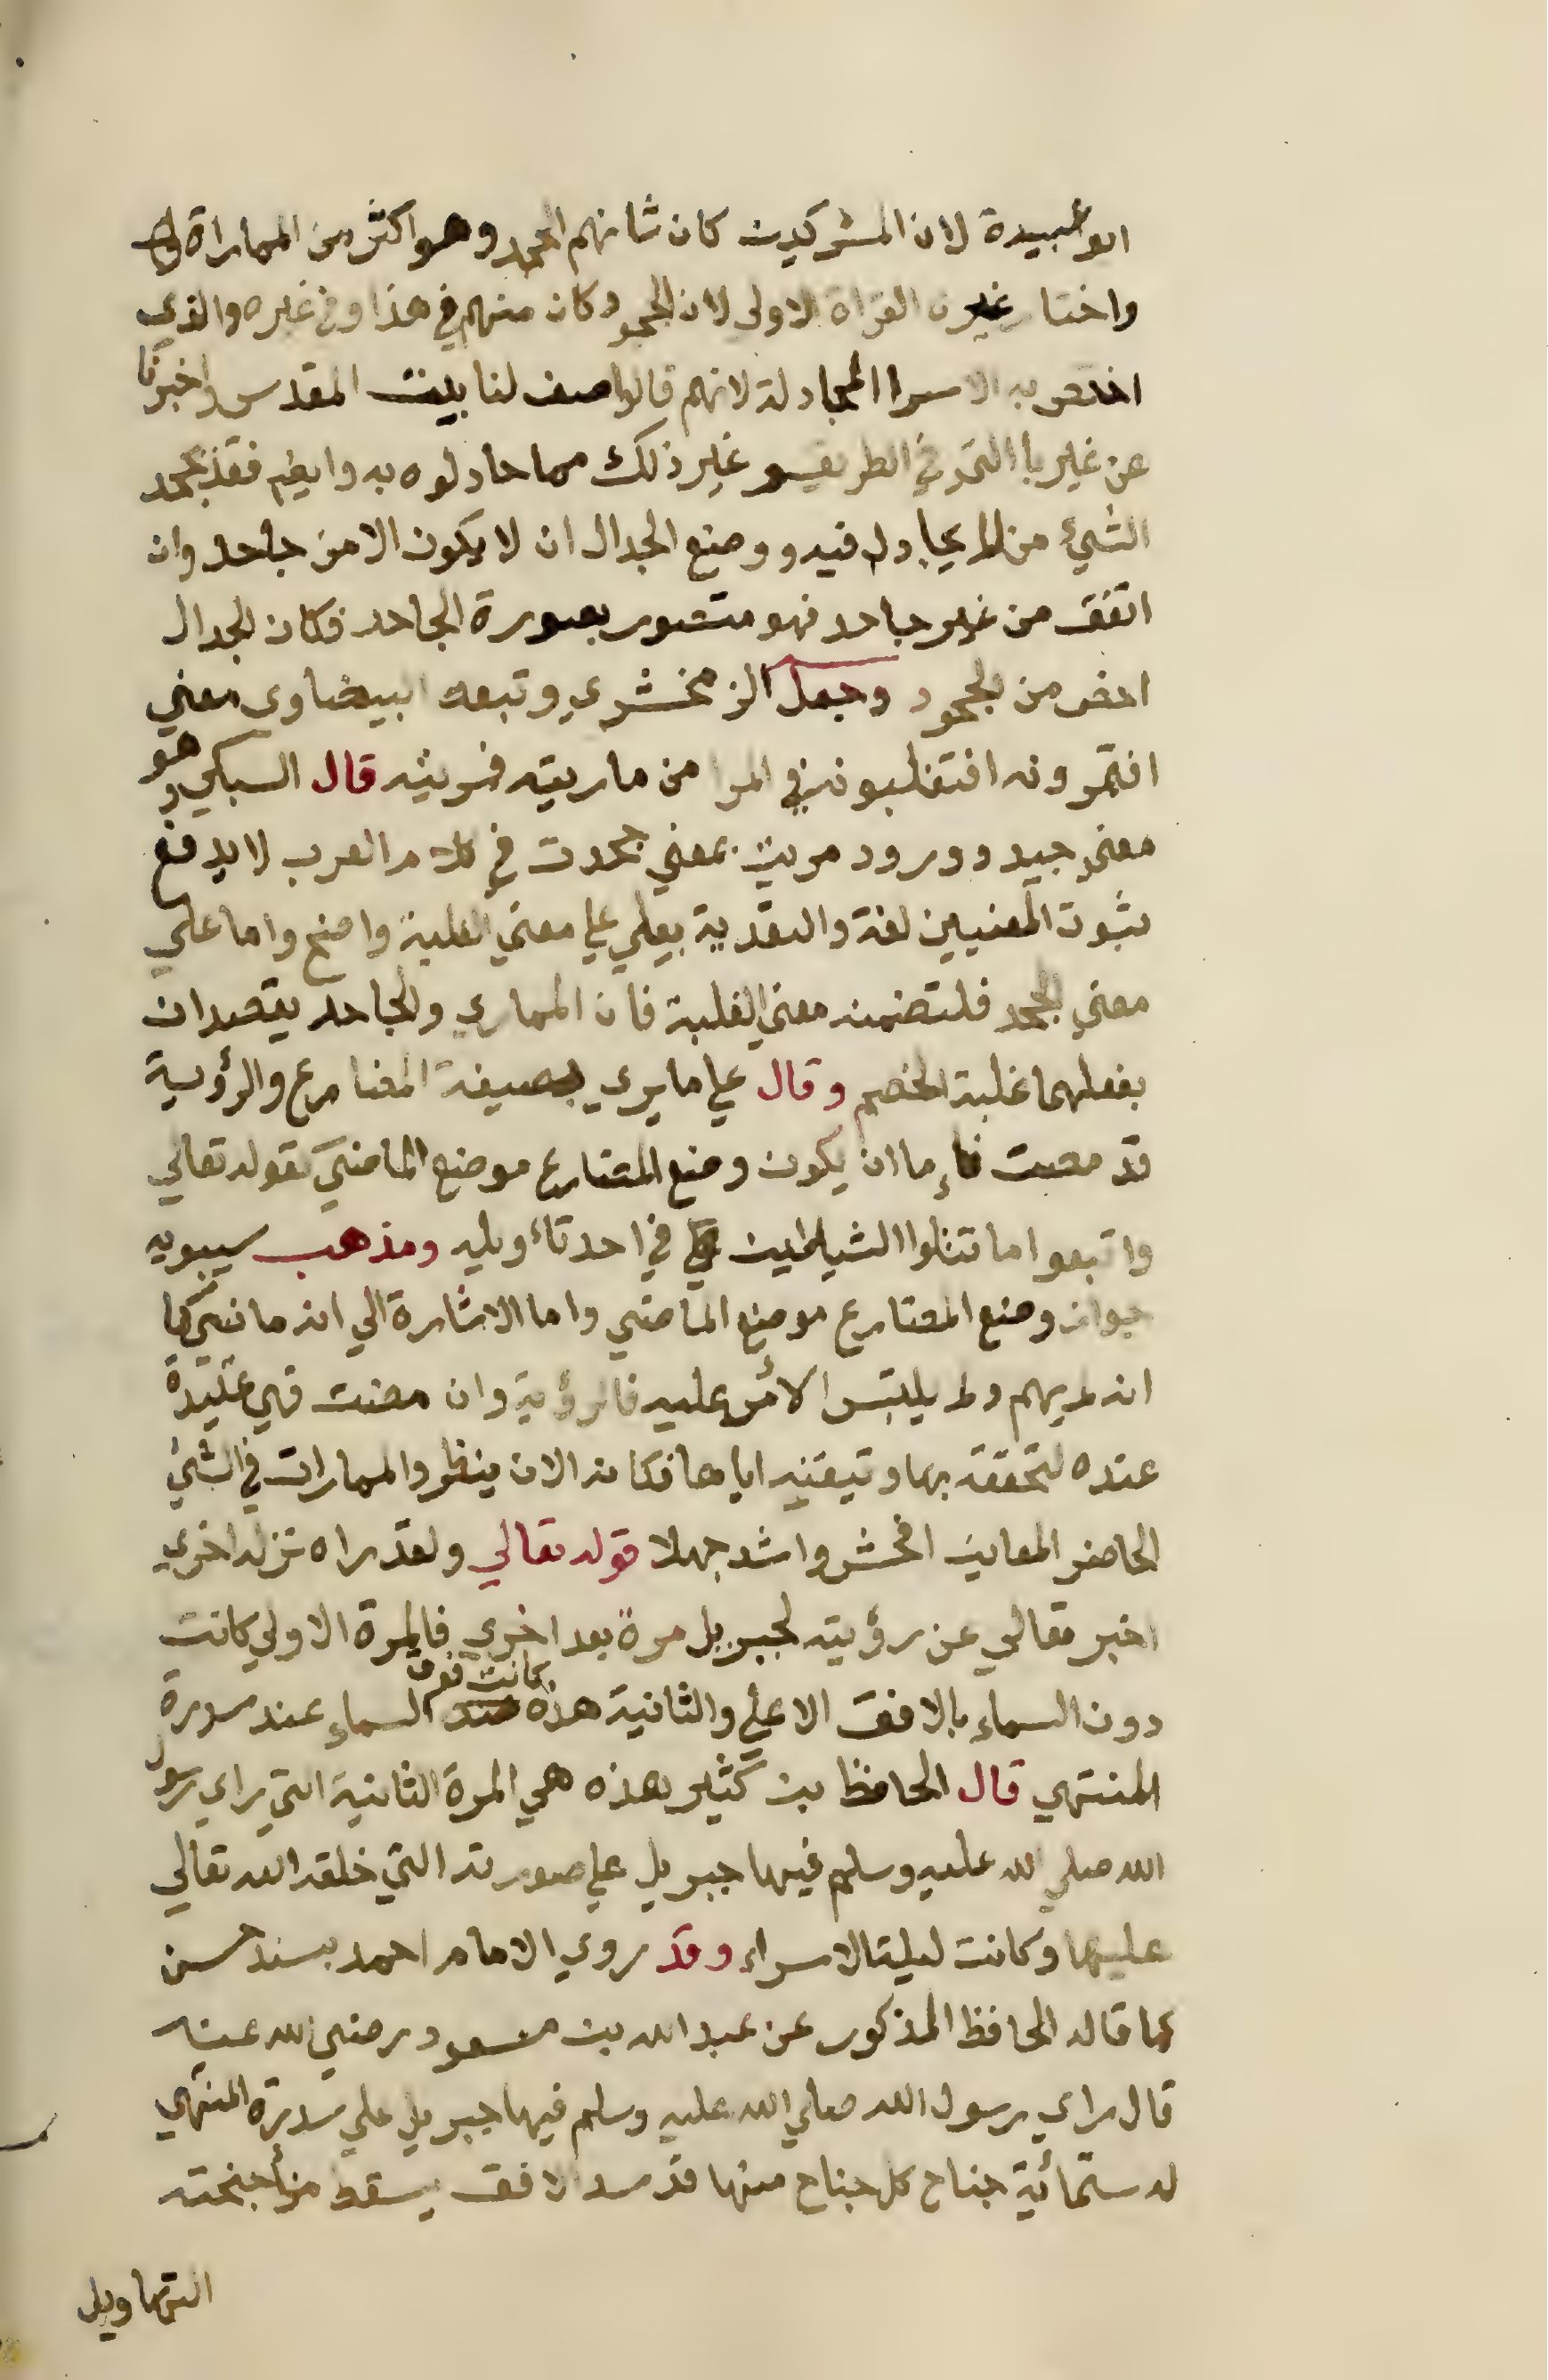 ابو عبيدة لان المشركين كان شانهم الجحد وهو اكثر من المماراة
واختار غيره القراة الاولى لان الجحود كان منهم في هذا وفي غيره والذي
اختص به الاسرا المجادلة لانهم قالوا صف لنا بيت المقدس واخبرنا
عن عيرنا التي في الطريق وغير ذلك مما جادلوه به وايضم فقد يجحد
الشيء من لا يجادل فيه ووضع الجدال ان لا يكون الا من جاحد وان
اتفق من غير جاحد فهو متصور بصورة الجاحد فكان الجدال
اخص من الجحود وجعل الزمخشري وتبعه البيضاوى معني
افتمرونه افتغلبونه في المرا من ماريته فمريته قال السبكي وهو
معني جيد وورود مريت بمعني جحدت في كلام العرب لا يدفع
ثبوت المعنيين لغة والتعدية بعلي علي معني الغلبة واضح واما علي
معني الجحد فلتضمنه معني الغلبة فان المماري والجاحد يقصدان
بفعلهما غلبة الخصم وقال علي ما يري بصيغة المضارع والرؤية
قد مضت فاما ان يكون وضع المضارع موضع الماضي كقوله تعالي
واتبعوا ما تتلوا الشياطين في احد تاويليه ومذهب سيبويه
جواز وضع المضارع موضع الماضي واما الاشارة الي انه مانسي كما
انه لم يهم ولم يلتبس الامر عليه فالرؤية وان مضت فهي عتيدة
عنده لتحققه بها وتيقنه اياها فكانه الان ينظر والممارات في الشيء
الحاضر المعاين افحش واشد جهلا قوله تعالي ولقد راه نزلة اخري
اخبر تعالي عن رؤيته لجبريل مرة بعد اخري فالمرة الاولي كانت
دون السماء بالافق الاعلي والثانية هذه كانت فوق السماء عند سدرة
المنتهي قال الحافظ بن كثير هذه هي المرة الثانية التي راي رسول
الله صلي الله عليه وسلم فيها جبريل علي صورته التي خلقه الله تعالي
عليها وكانت ليلة الاسراء وقد روي الامام احمد بسند حسن
كما قاله الحافظ المذكور عن عبد الله بن مسعود رضي الله عنه
قال راي رسول الله صلي الله عليه وسلم فيها جبريل علي سدرة المنتهي
له ستمائة جناح كل جناح منها قد سد الافق يسقط من اجنحته
التهاويل